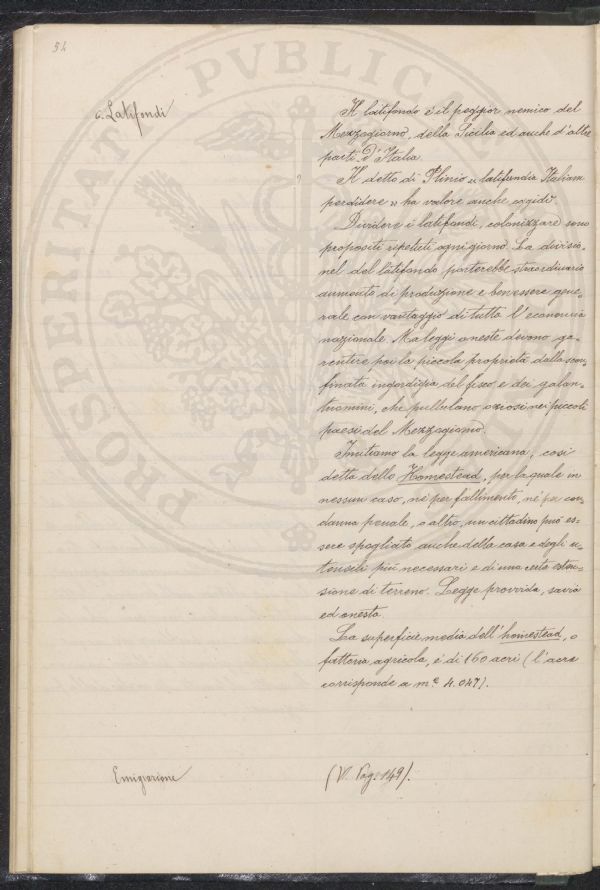 54
a. Latifondi
Il latifondo è il peggior nemico del
Mezzogiorno, della Sicilia ed anche d'altre
parti d'Italia.
Il detto di Plinio "latifundia Italiam
perdidere" ha valore anche oggidì.
Dividere i latifondi, colonizzare sono
propositi ripetuti ogni giorno. La divisio-
nel del latifondo porterebbe straordinario
aumento di produzione e benessere gene-
rale con vantaggio di tutta l'economia
nazionale. Ma leggi oneste devono ga-
rentire poi la piccola proprietà dalla scon-
finata ingordigia del fisco e dei galan-
tuomini, che pullulano oziosi nei piccoli
paesi del Mezzogiorno.
Imitiamo la legge americana, così
detta dello Homestead, per la quale in
nessun caso, nè per fallimento, nè per con-
danna penale, o altro, un cittadino può es-
sere spogliato anche della casa e degli u-
tensili più necessari e di una certa esten-
sione di terreno. Legge provvida, savia
ed onesta.
La superficie media dell'homestead, o
fattoria agricola, è di 160 acri (l'acre
corrisponde a m.q 4.047).
Emigrazione
(V. Pag. 149).
PVBLICA